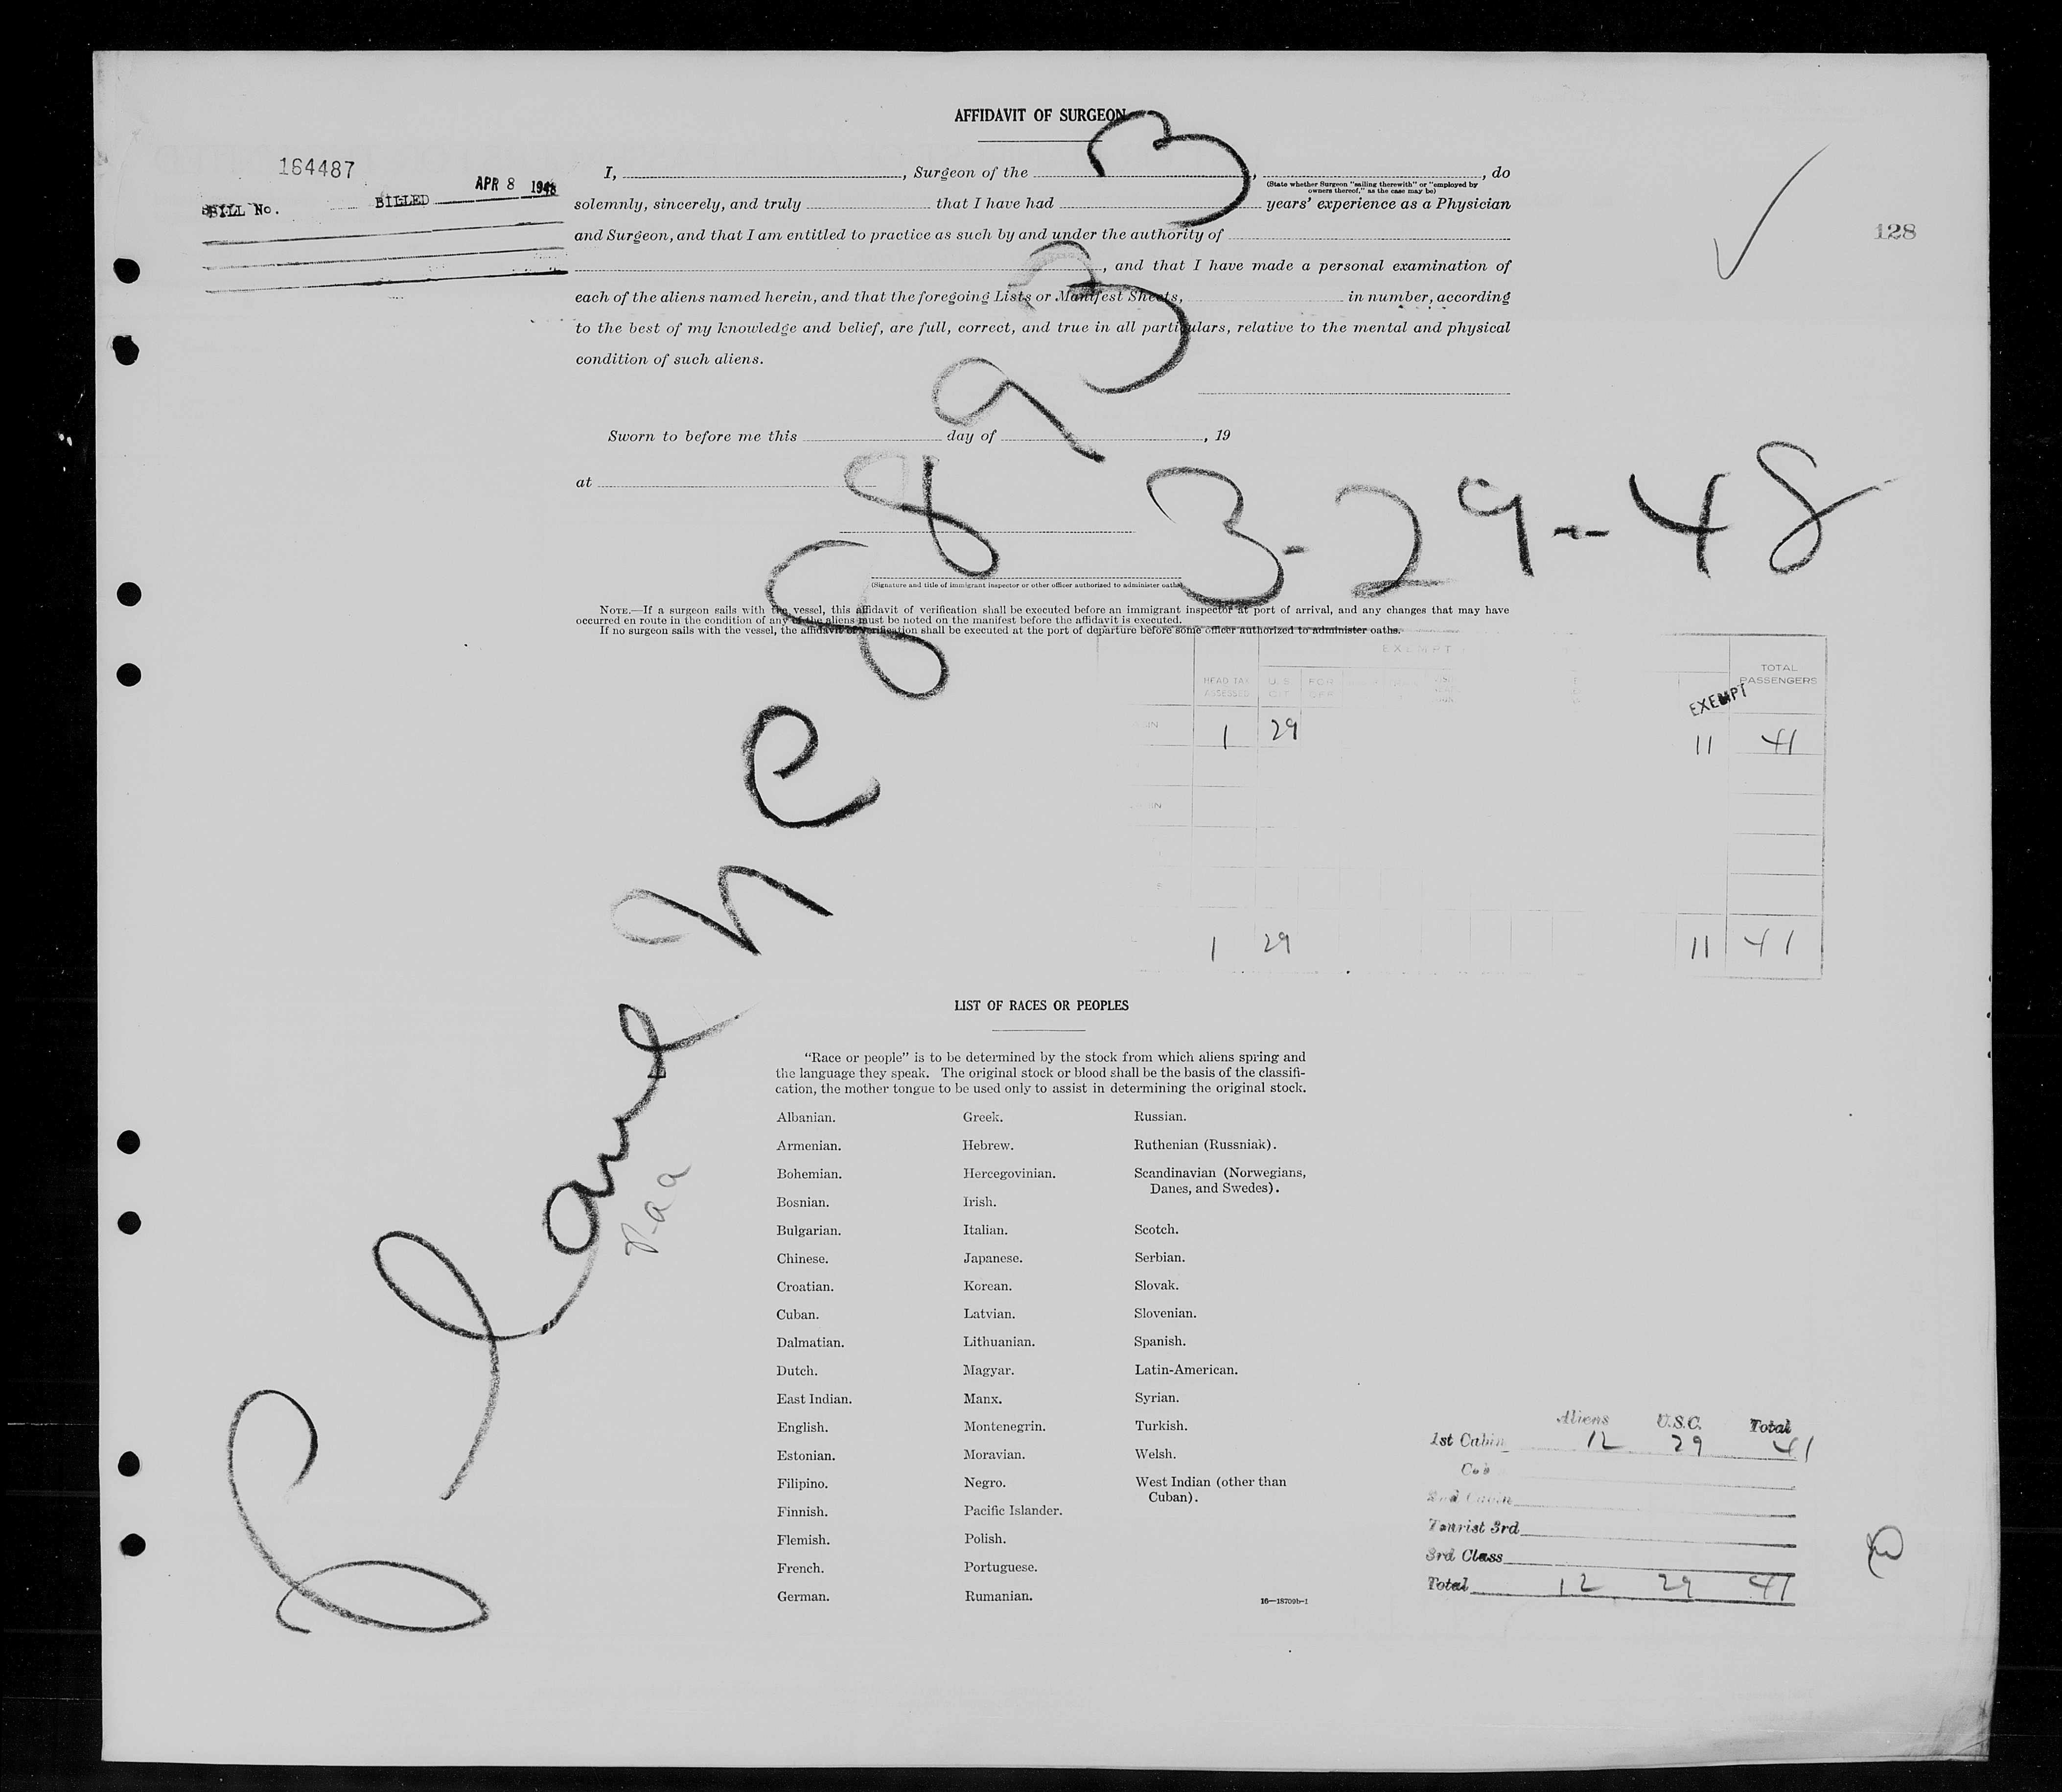 AFFIDAVIT OF SURGEON
164487
BILL No. BILLED APR 8 1948
I, , Surgeon of the , , do
(State whether Surgeon "sailing therewith" or "employed by
owners thereof," as the case may be)
solemnly, sincerely, and truly that I have had years' experience as a Physician
and Surgeon, and that I am entitled to practice as such by and under the authority of
, and that I have made a personal examination of
each of the aliens named herein, and that the foregoing Lists or Manifest Sheets, in number, according
to the best of my knowledge and belief, are full, correct, and true in all particulars, relative to the mental and physical
condition of such aliens.
128
Sworn to before me this day of , 19
at
(Signature and title of immigrant inspector or other officer authorized to administer oaths)
NOTE.—If a surgeon sails with the vessel, this affidavit of verification shall be executed before an immigrant inspector at port of arrival, and any changes that may have
occurred en route in the condition of any of the aliens must be noted on the manifest before the affidavit is executed.
If no surgeon sails with the vessel, the affidavit of verification shall be executed at the port of departure before some officer authorized to administer oaths.
Plane NC 88933
3-29-48
Paa
EXEMPT
HEAD TAX U.S. FOR TOTAL
ASSESSED OFF PASSENGERS
EXEMPT
1 29 11 41
1 29 11 41
LIST OF RACES OR PEOPLES
"Race or people" is to be determined by the stock from which aliens spring and
the language they speak. The original stock or blood shall be the basis of the classifi-
cation, the mother tongue to be used only to assist in determining the original stock.
Albanian.
Armenian.
Bohemian.
Bosnian.
Bulgarian.
Chinese.
Croatian.
Cuban.
Dalmatian.
Dutch.
East Indian.
English.
Estonian.
Filipino.
Finnish.
Flemish.
French.
German.
Greek.
Hebrew.
Hercegovinian.
Irish.
Italian.
Japanese.
Korean.
Latvian.
Lithuanian.
Magyar.
Manx.
Montenegrin.
Moravian.
Negro.
Pacific Islander.
Polish.
Portuguese.
Rumanian.
Russian.
Ruthenian (Russniak).
Scandinavian (Norwegians,
Danes, and Swedes).
Scotch.
Serbian.
Slovak.
Slovenian.
Spanish.
Latin-American.
Syrian.
Turkish.
Welsh.
West Indian (other than
Cuban).
16—18709b-1
Aliens U.S.C. Total
1st Cabin 12 29 41
Cab
2nd Cabin
Tourist 3rd
3rd Class
Total 12 29 41